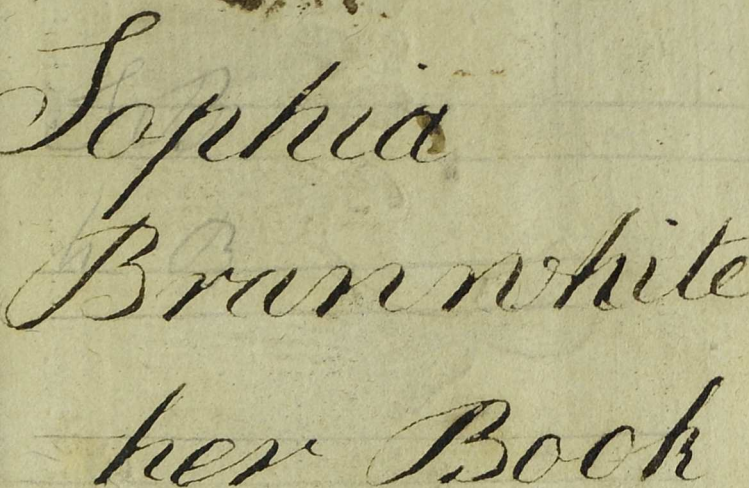 Sophia
Brannwhite
her Book